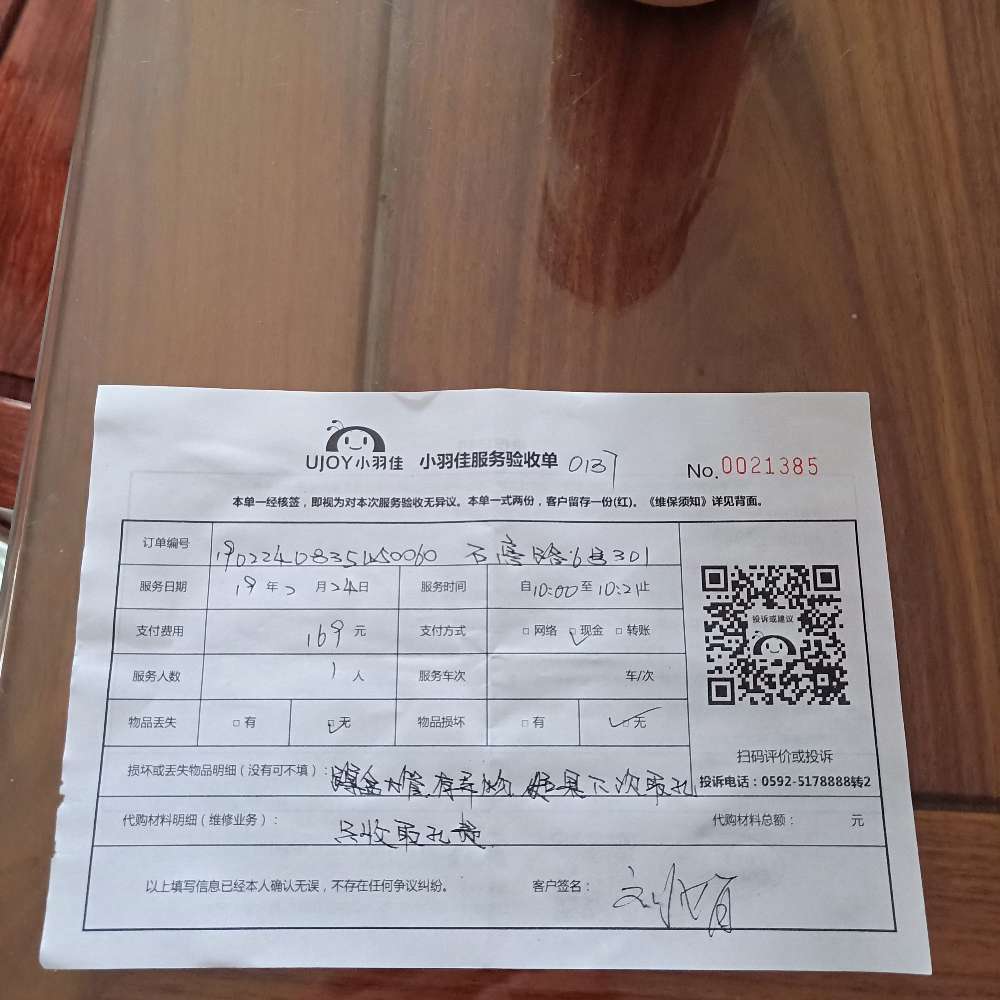 UJOY小羽佳 小羽佳服务验收单 0137 No.0021385
本单一经核签，即视为对本次服务验收无异议。本单一式两份，客户留存一份(红)。《维保须知》详见背面。
订单编号 301
服务日期 19年2月24日 服务时间 自10:00至10:21止
支付费用 169元 支付方式 □网络 □现金 □转账
服务人数 1人 服务车次 车/次
物品丢失 □有 □无 物品损坏 □有 □无
投诉或建议
扫码评价或投诉
投诉电话：0592-5178888转2
损坏或丢失物品明细（没有可不填）： 下次取孔
代购材料明细（维修业务）： 只收取孔费 代购材料总额： 元
以上填写信息已经本人确认无误，不存在任何争议纠纷。 客户签名：